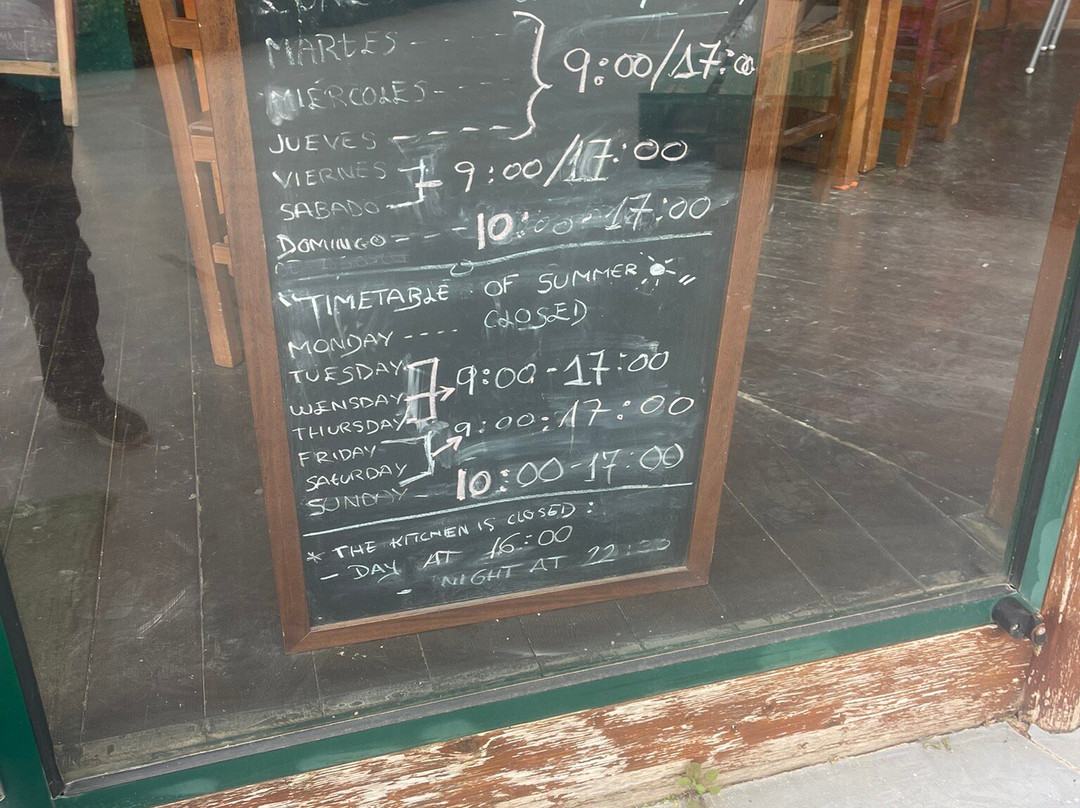 MARTES ----
MIÉRCOLES --- 9:00/17:00
JUEVES ----
VIERNES
SABADO 9:00/17:00
DOMINGO --- 10:00-17:00
"TIMETABLE OF SUMMER"
MONDAY ---- CLOSED
TUESDAY
WENSDAY 9:00-17:00
THURSDAY
FRIDAY 9:00:17:00
SATURDAY
SUNDAY - 10:00-17:00
* THE KITCHEN IS CLOSED:
- DAY AT 16:00
- NIGHT AT 22:30